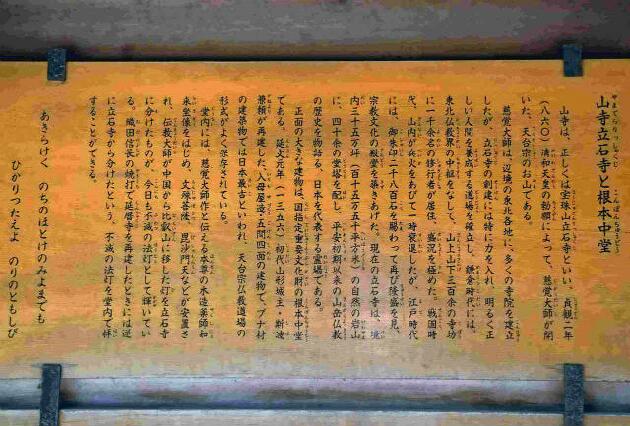 山寺立石寺と根本中堂
山寺は、正しくは宝珠山立石寺といい、貞観二年
(八六〇)清和天皇の勅願によって、慈覚大師が開
いた、天台宗のお山である。
慈覚大師は、辺境の東北各地に、多くの寺院を建立
したが、立石寺の創建には特に力を入れ、明るく正
しい人間を養成する道場を確立し、鎌倉時代には、
東北仏教界の中枢をなして、山上山下三百余の寺坊
に一千余名の修行者が居住、盛況を極めた。戦国時
代、山内が兵火をあびて一時衰退したが、江戸時代
には、御朱印二千八百石を賜わって再び隆盛を見、
宗教文化の殿堂を築きあげた。現在の立石寺は、境
内三十五万坪(百十五万五千平方米)の自然の岩山
に、四十余の堂塔を配し、平安初期以来の山岳仏教
の歴史を物語る、日本を代表する霊場である。
正面の大きな建物は、国指定重要文化財の根本中堂
である。延文元年(一三五六)初代山形城主・斯波
兼頼が再建した、入母屋造・五間四面の建物で、ブナ材
の建築物では日本最古といわれ、天台宗仏教道場の
形式がよく保存されている。
堂内には、慈覚大師作と伝える本尊の木造薬師如
来坐像をはじめ、文殊菩薩、毘沙門天などが安置さ
れ、伝教大師が中国から比叡山に移した灯を立石寺
に分けたものが、今日も不滅の法灯として輝いてい
る。織田信長の焼打で延暦寺を再建したときには逆
に立石寺から分けたという、不滅の法灯を堂内で拝
することができる。
あきらけく のちのほとけのみよまでも
ひかりつたえよ のりのともしび